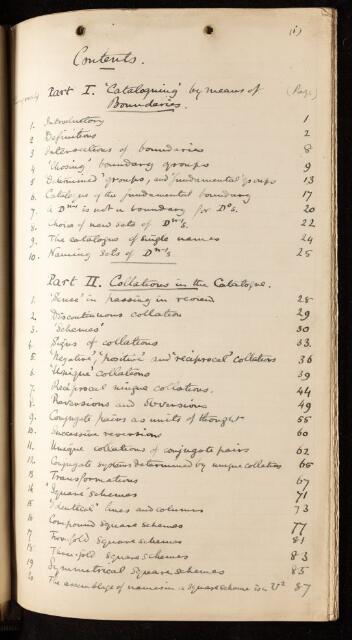 (i)
Contents.
Part I. 'Cataloguing' by means of
Boundaries. (Page)
1. Introductory 1
2. Definitions 2
3. Intersections of boundaries 8
4. 'Closing' boundary groups 9
5. Determined 'groups, and 'fundamental' groups 13
6. Catalogue of the fundamental boundary 17
7. A Dⁿ⁻¹ is not a boundary for D⁰s. 20
8. Choice of new sets of Dⁿ⁻¹s. 22
9. The catalogue of single names 24
10. Naming sets of Dⁿ⁻¹s 25
Part II. Collations in the Catalogue.
1. 'Sense' in passing in review 28
2. Discontinuous collation 29
3. 'Schemes' 30
4. Signs of collations 33.
5. 'Negative', 'positive' and 'reciprocal' collations 36
6. 'Unique' collations 39
7. Reciprocal unique collations. 44
8. Reversions and 49
9. Conjugate pairs as units of thought 55
10. Successive reversions 60
11. Unique collations of conjugate pairs 62
12. Conjugate systems determined by unique collations 65
13 Transformations 67
14 'Square' schemes 71
15 'Identical' lines and columns 73
16 Compound square schemes 77
17 Two-fold square schemes 81
18 Three-fold square schemes 83
19 Symmetrical square schemes 85
20 The assemblage of names in a square scheme is a U² 87